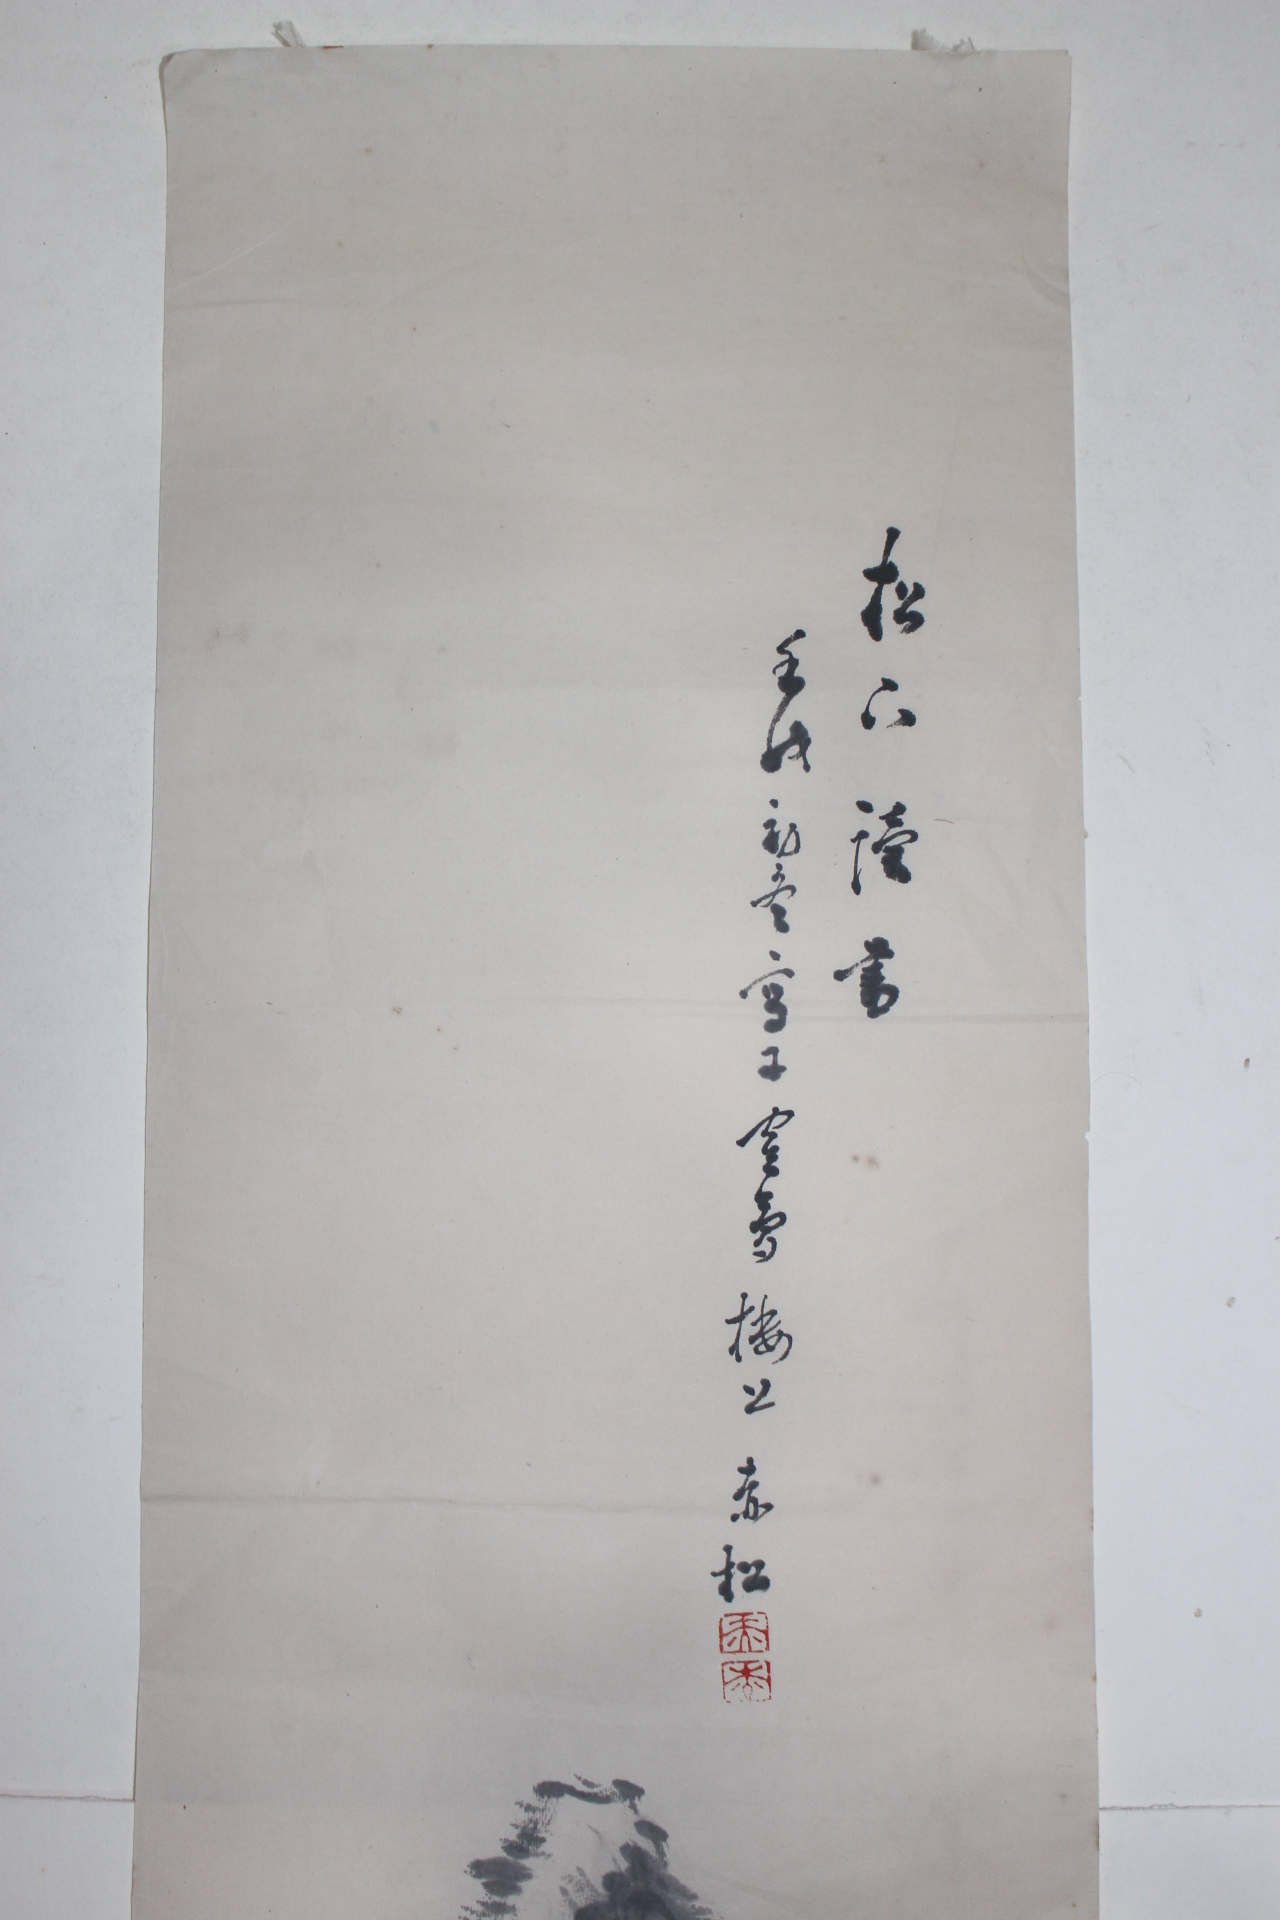 松下讀書
壬戌初冬寫于雲樓上 赤松